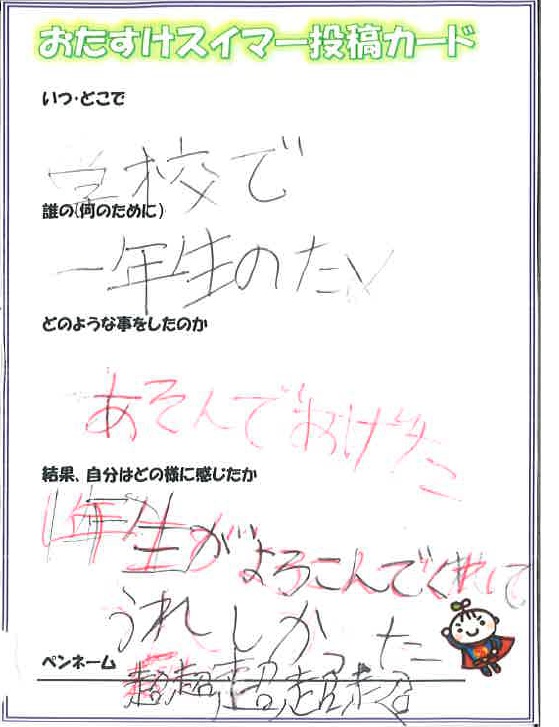 おたすけスイマー投稿カード
いつ・どこで
学校で
誰の(何のために)
一年生のため
どのような事をしたのか
あそんであげた
結果、自分はどの様に感じたか
1年生がよろこんでくれて
うれしかった
ペンネーム
超超超超超